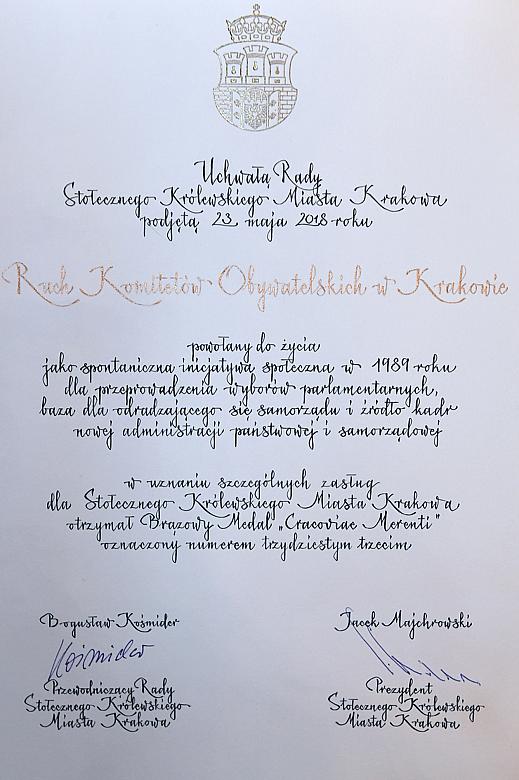 Uchwałą Rady
Stołecznego Królewskiego Miasta Krakowa
podjętą 23 maja 2018 roku
Ruch Komitetów Obywatelskich w Krakowie
powołany do życia
jako spontaniczna inicjatywa społeczna w 1989 roku
dla przeprowadzenia wyborów parlamentarnych,
baza dla odradzającego się samorządu i źródło kadr
nowej administracji państwowej i samorządowej
w uznaniu szczególnych zasług
dla Stołecznego Królewskiego Miasta Krakowa
otrzymał Brązowy Medal „Cracoviae Merenti"
oznaczony numerem trzydziestym trzecim
Bogusław Kośmider
Kośmider
Przewodniczący Rady
Stołecznego Królewskiego
Miasta Krakowa
Jacek Majchrowski
Prezydent
Stołecznego Królewskiego
Miasta Krakowa